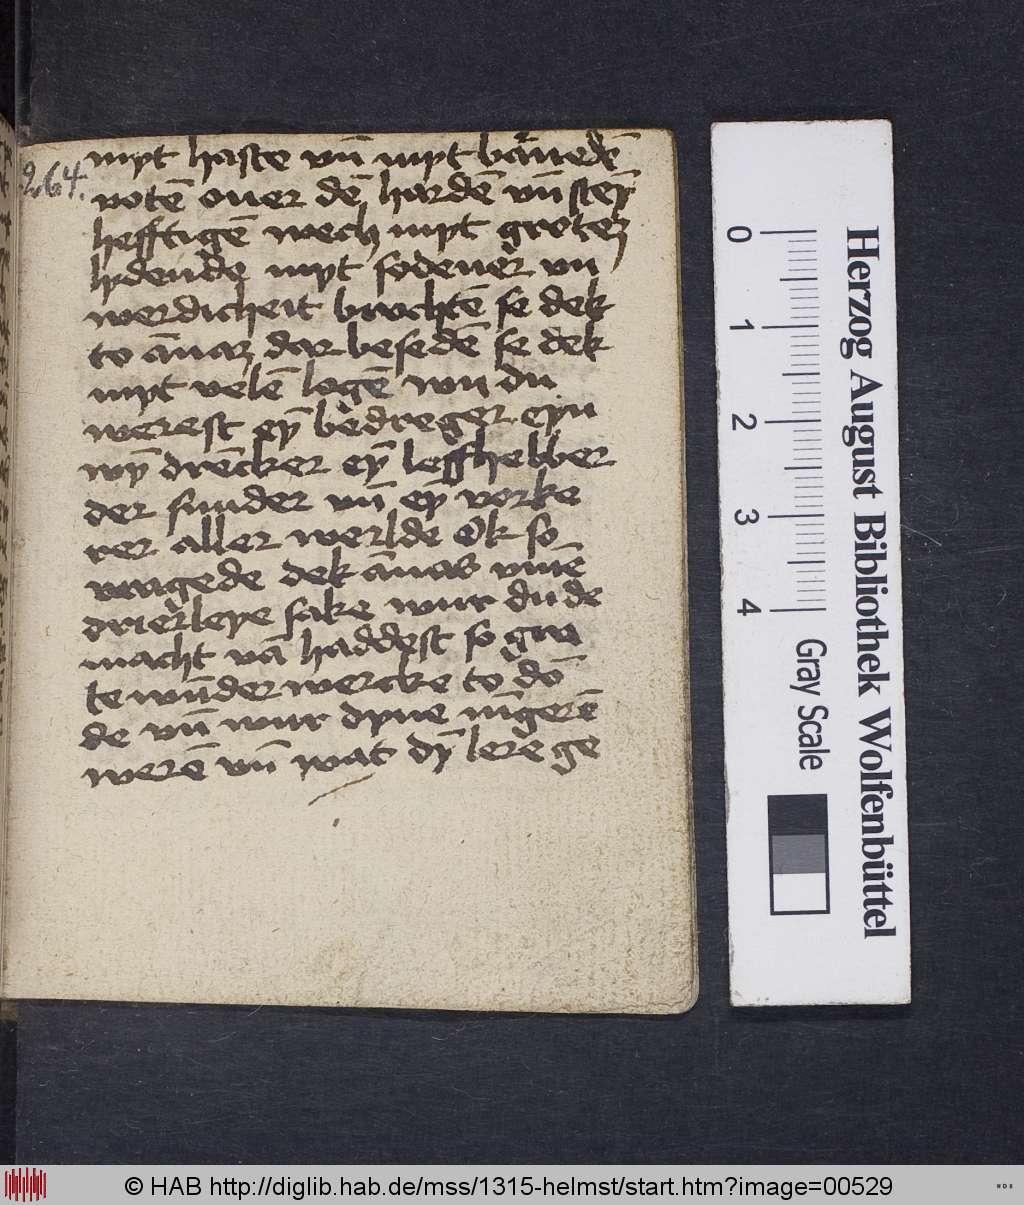 264.
myt haste vn̄ myt bāruedē
votē ouer dē hardē vn̄ steȳ
hefftigē wech myt groten
lydende myt sodener vn
werdicheit brochtē se dek
to ānaz dar besedē se dek
myt velē logē wu du
werest eȳ bedreger eyn
wȳ drēcker eȳ leffhebber
der sunder vn̄ eȳ vorke
rer aller werlde Ok so
vragede dek ānas vmē
drierleye sake wur du de
macht vā haddest so gro
te wūder wercke to dō
de vn̄ wur dyne iūgerē
werē vn̄ wat dȳ lere ge
Herzog August Bibliothek Wolfenbüttel
0 1 2 3 4
Gray Scale
© HAB http://diglib.hab.de/mss/1315-helmst/start.htm?image=00529
WDB